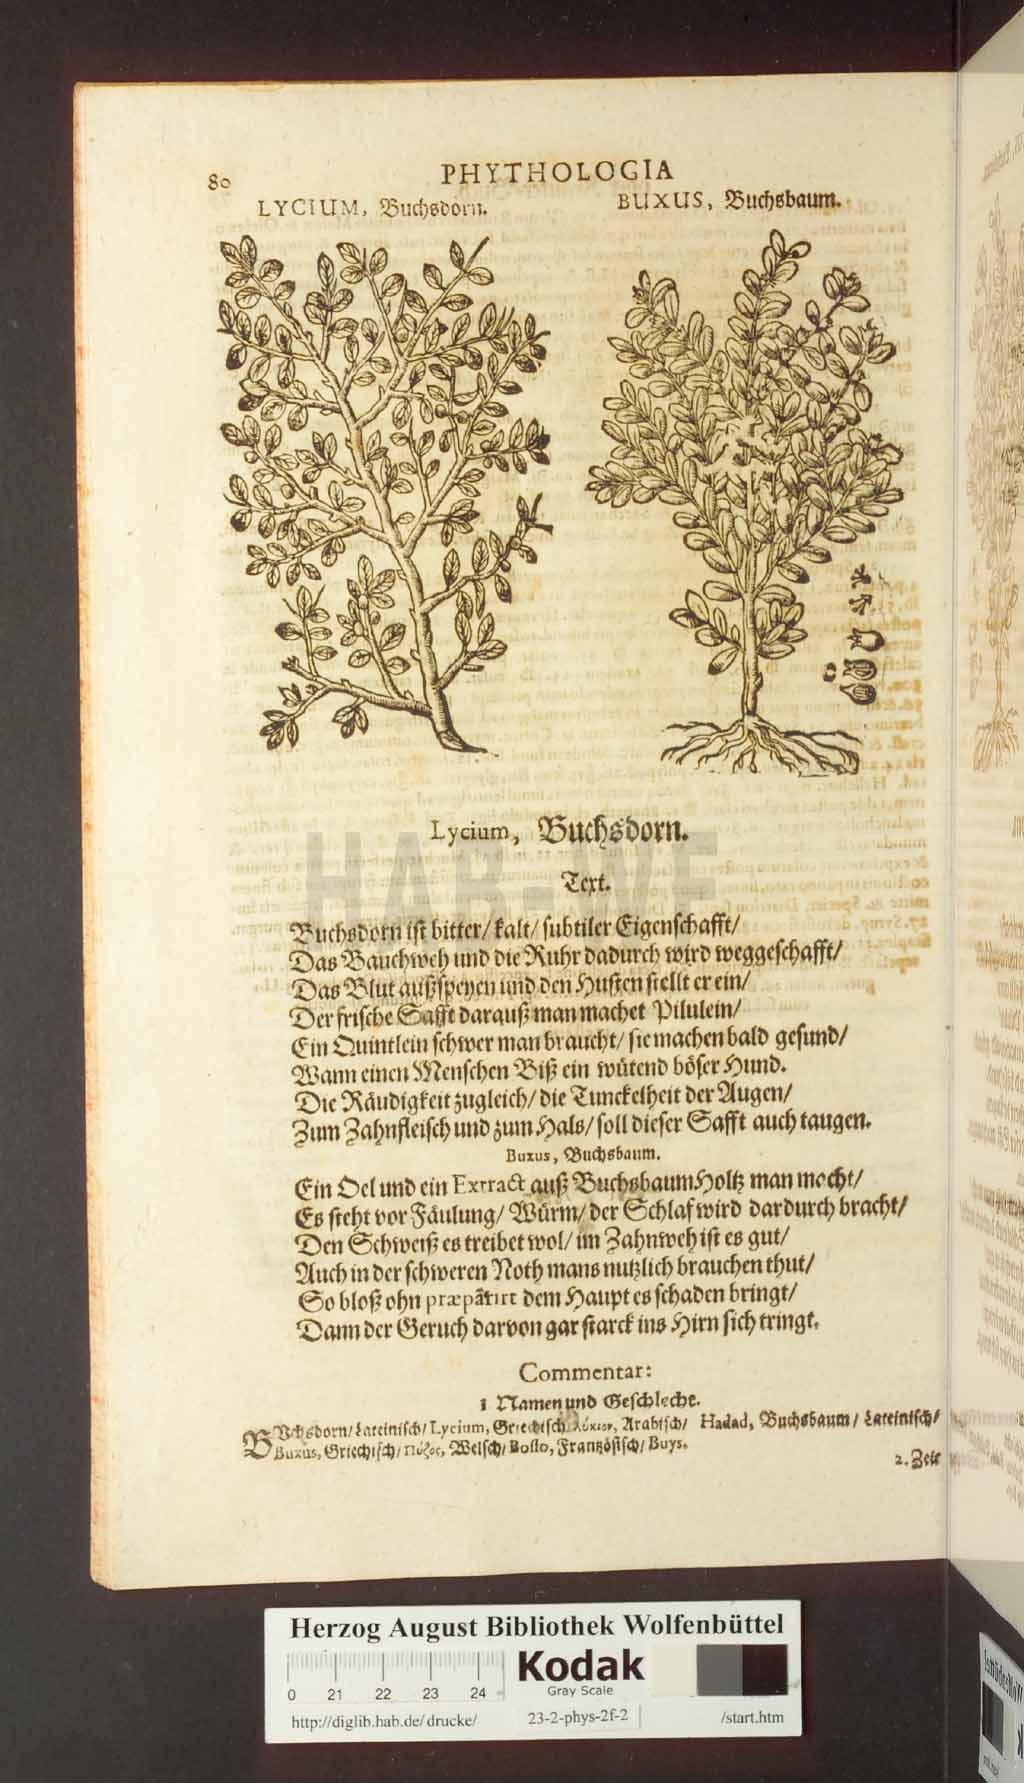 80
PHYTHOLOGIA
LYCIUM, Buchsdorn.
BUXUS, Buchsbaum.
Lycium, Buchsdorn.
Text.
Buchsdorn ist bitter/ kalt/ subtiler Eigenschafft/
Das Bauchweh und die Ruhr dadurch wird weggeschafft/
Das Blut außspeyen und den Husten stellt er ein/
Der frische Safft darauß man machet Pilulein/
Ein Quintlein schwer man braucht/ sie machen bald gesund/
Wann einen Menschen Biß ein wütend böser Hund.
Die Räudigkeit zugleich/ die Tunckelheit der Augen/
Zum Zahnfleisch und zum Hals/ soll dieser Safft auch taugen.
Buxus, Buchsbaum.
Ein Oel und ein Extract auß Buchsbaum Holtz man macht/
Es steht vor Fäulung/ Würm/ der Schlaf wird dardurch bracht/
Den Schweiß es treibet wol/ im Zahnweh ist es gut/
Auch in der schweren Noth mans nutzlich brauchen thut/
So bloß ohn præparirt dem Haupt es schaden bringt/
Dann der Geruch darvon gar starck ins Hirn sich tringt.
Commentar:
1 Namen und Geschlecht.
BUchsdorn/ Lateinisch/ Lycium, Griechisch λύκιον, Arabisch/ Hadad, Buchsbaum/ Lateinisch/
Buxus, Griechisch/ Πύξος, Welsch/ Bosso, Frantzösisch/ Buys.
2. Zeit
HAB-WF
Herzog August Bibliothek Wolfenbüttel
0 21 22 23 24
Kodak
Gray Scale
http://diglib.hab.de/drucke/ 23-2-phys-2f-2 /start.htm